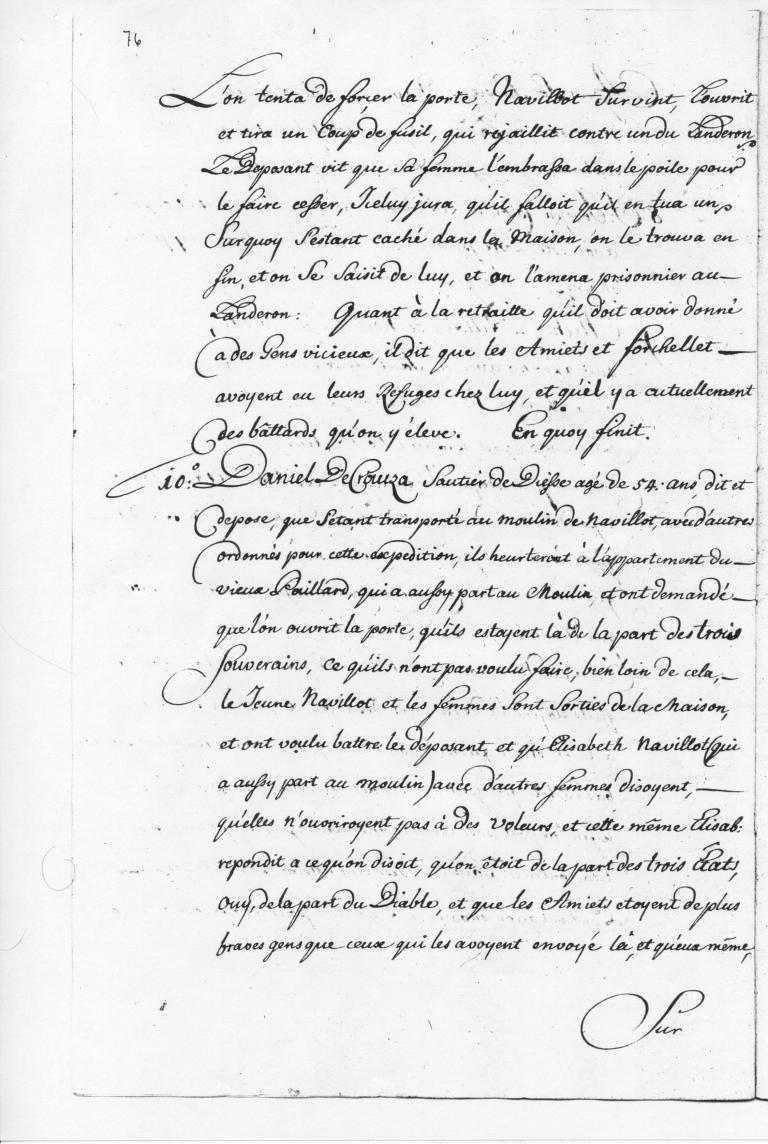 76
L'on tenta de forçer la porte, Navillot Survint, Louvrit
et tira un Coup de fusil, qui rejaillit contre un du Landeron
Le Deposant vit que sa femme l'embrassa dans le poile pour
le faire cesser, Iceluy jura, qu'il falloit qu'il en tua un,
Surquoy S'estant caché dans la Maison, on le trouva en
fin, et on Se Saisit de luy, et on l'amena prisonnier au
Landeron: Quant à la retraitte qu'il doit avoir donné
à des Gens vicieux, il dit que les Amiets et forchellet
avoyent eu leurs Refuges chez luy, et qu'il y a actuellement
des bâttards qu'on y éleve. En quoy finit.
10.º Daniel DeCrouza Sautier de Diesse agé de 54. ans, dit et
depose, que S'etant transporté au moulin de Navillot, avec d'autres
ordonnés pour cette expedition, ils heurterent à l'appartement du
vieux Paillard, qui a aussy part au Moulin, et ont demandé
que l'on ouvrit la porte, qu'ils estoyent là de la part des trois
Souverains, ce qu'ils n'ont pas voulu faire, bien loin de cela,
le Jeune Navillot et les femmes Sont Sorties de la Maison,
et ont voulu battre le déposant, et qu'Elisabeth Navillot (qui
a aussy part au moulin) avec d'autres femmes disoyent,
qu'elles n'ouvriroyent pas à des Voleurs, et cette même Elisab:
repondit a ce qu'on disoit, qu'on étoit de la part des trois États,
Ouy, de la part du Diable, et que les Amiets etoyent de plus
braves gens que ceux qui les avoyent envoyé là, et qu'eux même,
Sur